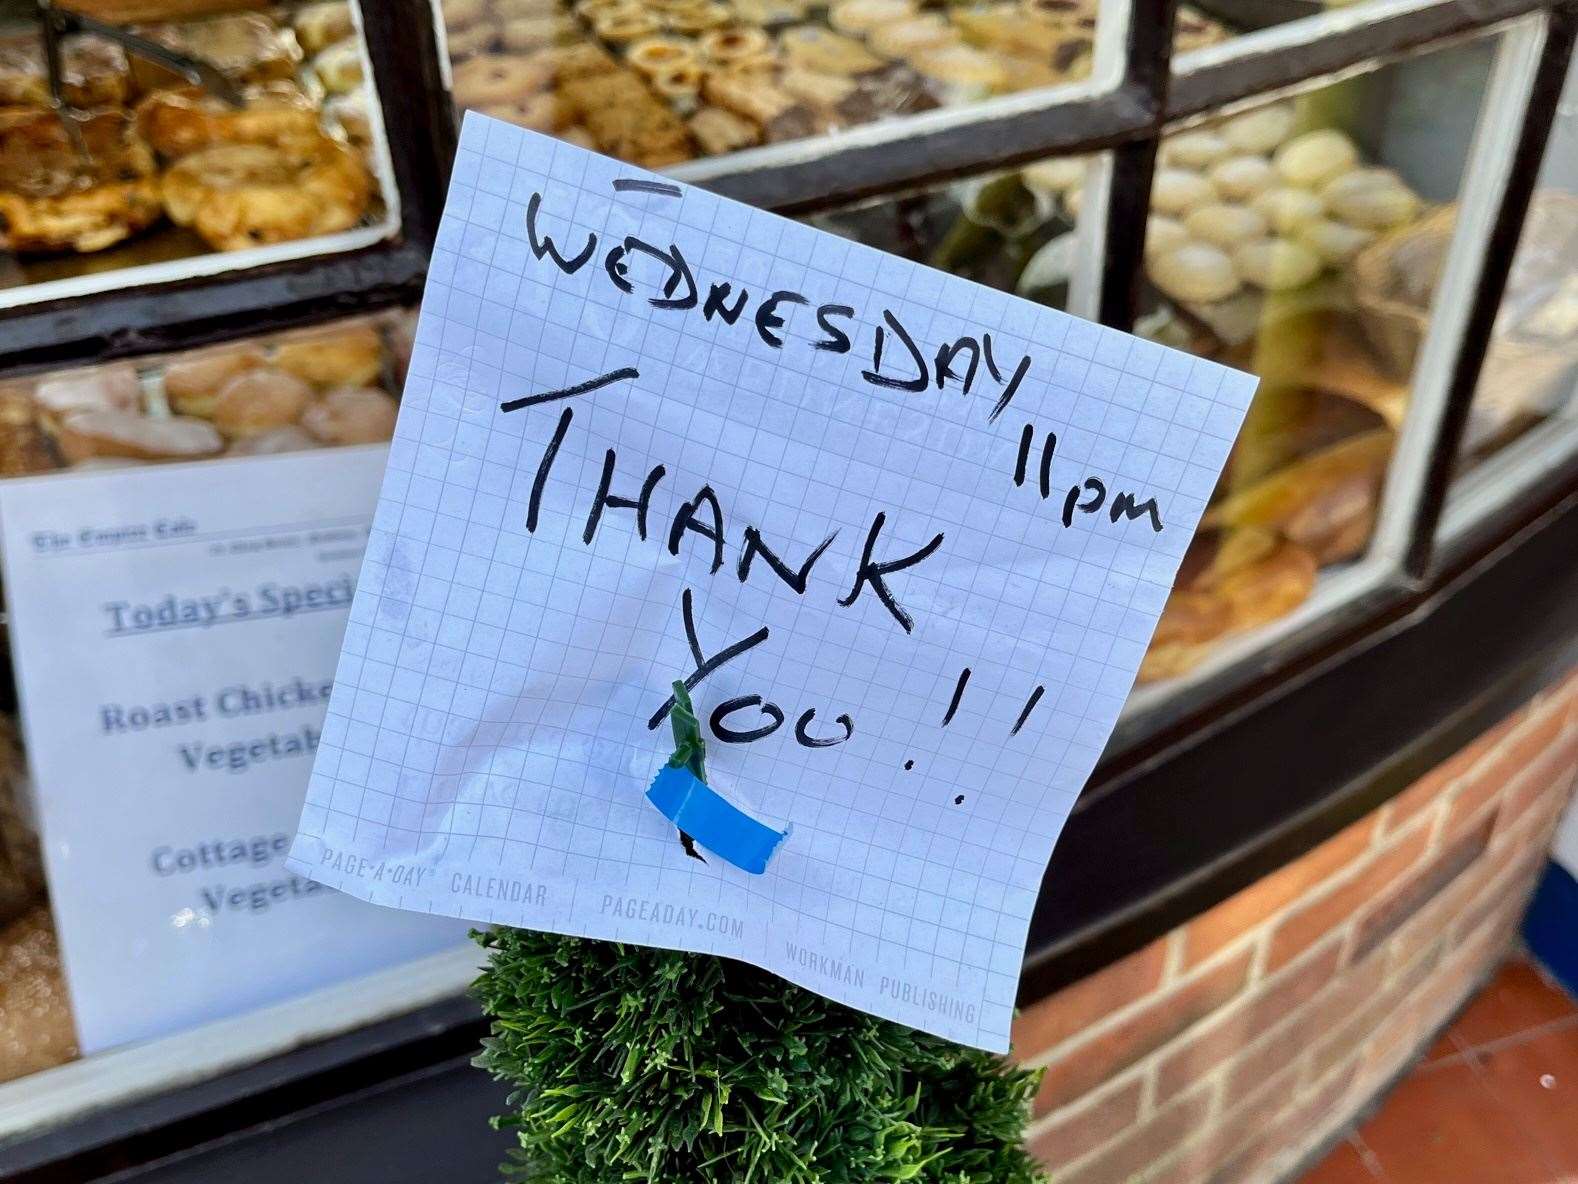 WEDNESDAY
11pm
THANK
YOU!!
PAGE•A•DAY® CALENDAR PAGEADAY.COM WORKMAN PUBLISHING
The Empire Cafe
Today's Speci
Roast Chicke
Vegetab
Cottage
Vegeta